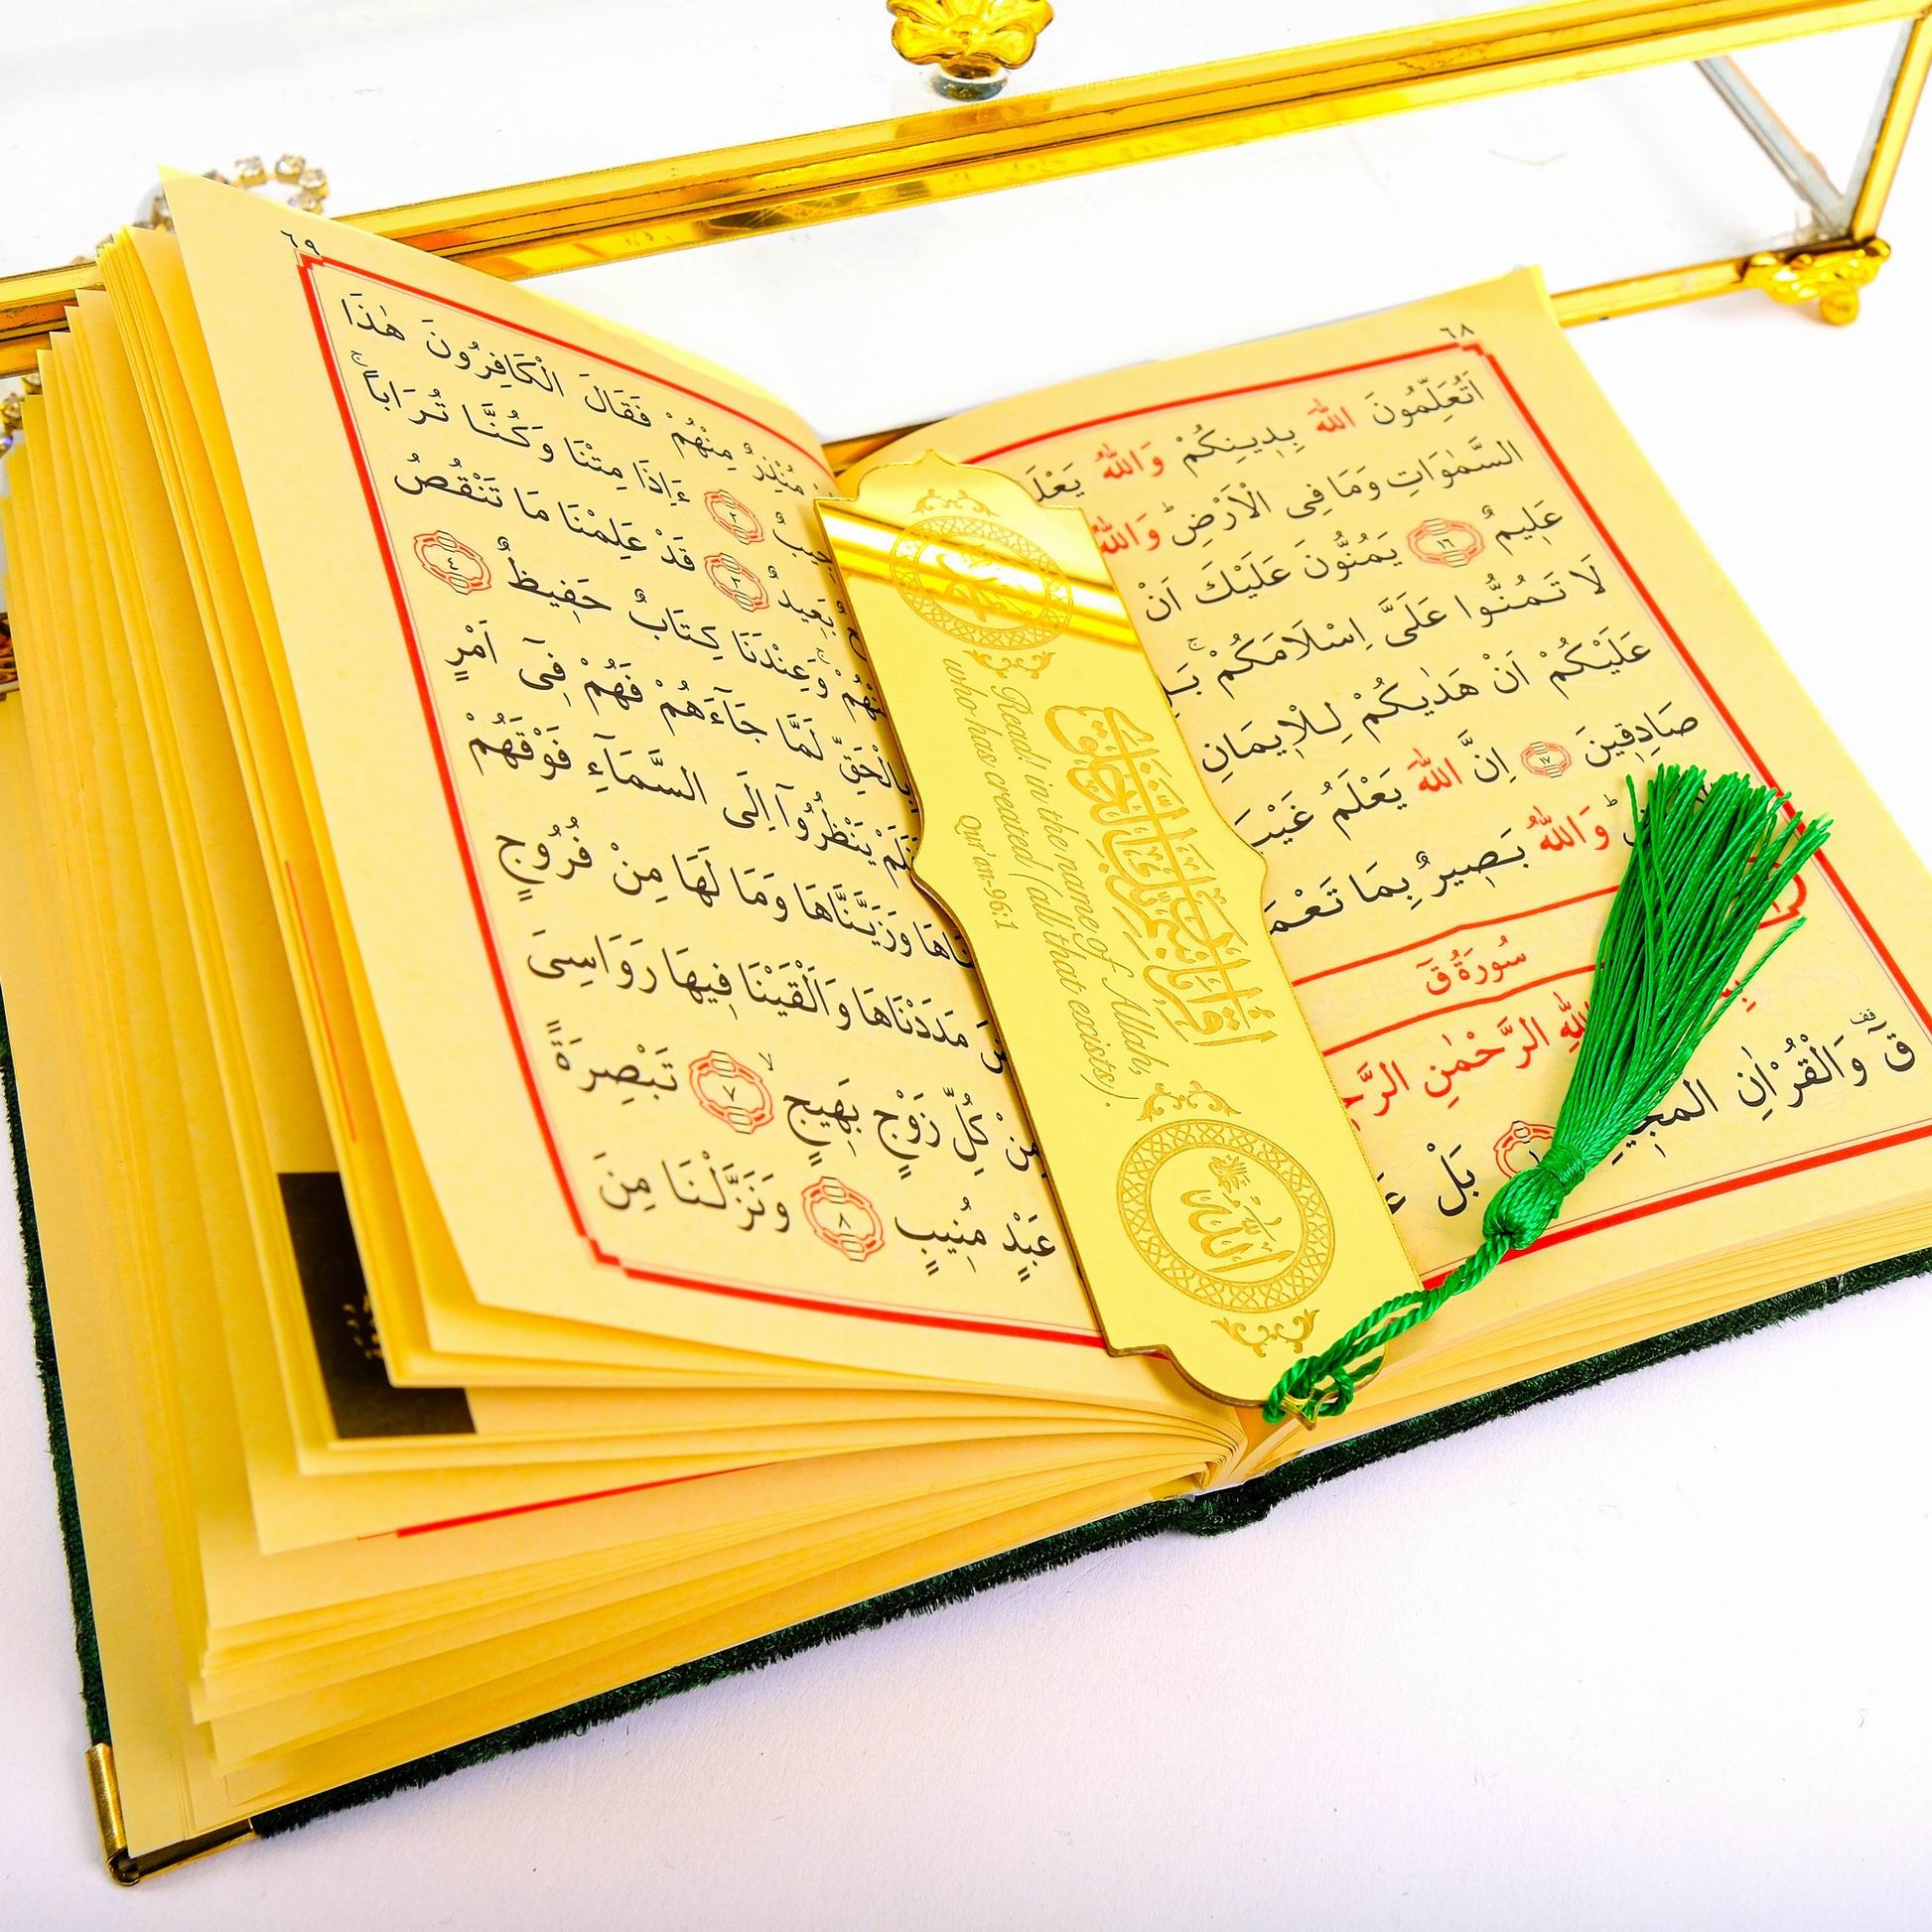 ٦٨
اَتُعَلِّمُونَ اللّٰهَ بِدِينِكُمْ وَاللّٰهُ
السَّمٰوَاتِ وَمَا فِى الْاَرْضِ وَاللّٰهُ
عَلِيمٌ ١٦ يَمُنُّونَ عَلَيْكَ اَنْ
لَا تَمُنُّوا عَلَىَّ اِسْلَامَكُمْ
عَلَيْكُمْ اَنْ هَدٰيكُمْ لِلْاِيمَانِ
صَادِقِينَ ١٧ اِنَّ اللّٰهَ يَعْلَمُ
وَاللّٰهُ بَصِيرٌ بِمَا
سُورَةُ قٓ
الرَّحْمٰنِ
قٓ وَالْقُرْاٰنِ
بَلْ
٦٩
مُنْذِرٌ مِنْهُمْ فَقَالَ الْكَافِرُونَ هٰذَا
٢ ءَاِذَا مِتْنَا وَكُنَّا تُرَاباً
بَعِيدٌ ٣ قَدْ عَلِمْنَا مَا تَنْقُصُ
وَعِنْدَنَا كِتَابٌ حَفِيظٌ ٤
بِالْحَقِّ لَمَّا جَٓاءَهُمْ فَهُمْ فِٓى اَمْرٍ
يَنْظُرُٓوا اِلَى السَّمَٓاءِ فَوْقَهُمْ
وَزَيَّنَّاهَا وَمَا لَهَا مِنْ فُرُوجٍ
مَدَدْنَاهَا وَاَلْقَيْنَا فِيهَا رَوَاسِىَ
مِنْ كُلِّ زَوْجٍ بَهِيجٍ ٧ تَبْصِرَةً
عَبْدٍ مُنِيبٍ ٨ وَنَزَّلْنَا مِنَ
اقرأ باسم ربك الذي خلق
Read! in the name of Allah,
who has created (all that exists).
Qur'an-96:1
الله